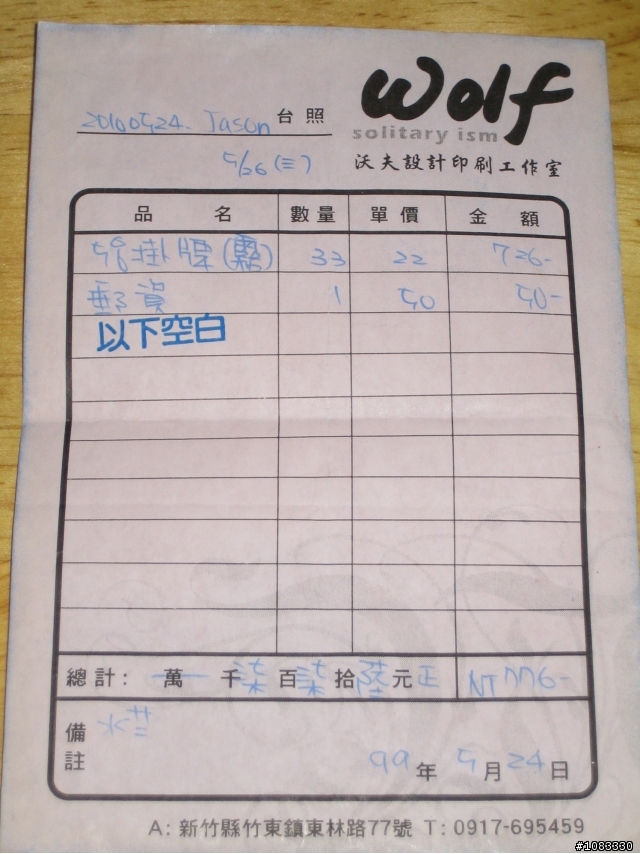 wolf
solitary ism
沃夫設計印刷工作室
20100524. Jason 台照
5/26 (三)
品名 數量 單價 金額
掛牌 33 22 726-
郵資 1 50 50-
以下空白
總計: 萬 千 柒 百 柒 拾 陸 元 正 NT 776-
備註
99 年 5 月 24 日
A: 新竹縣竹東鎮東林路77號 T: 0917-695459
#1083330